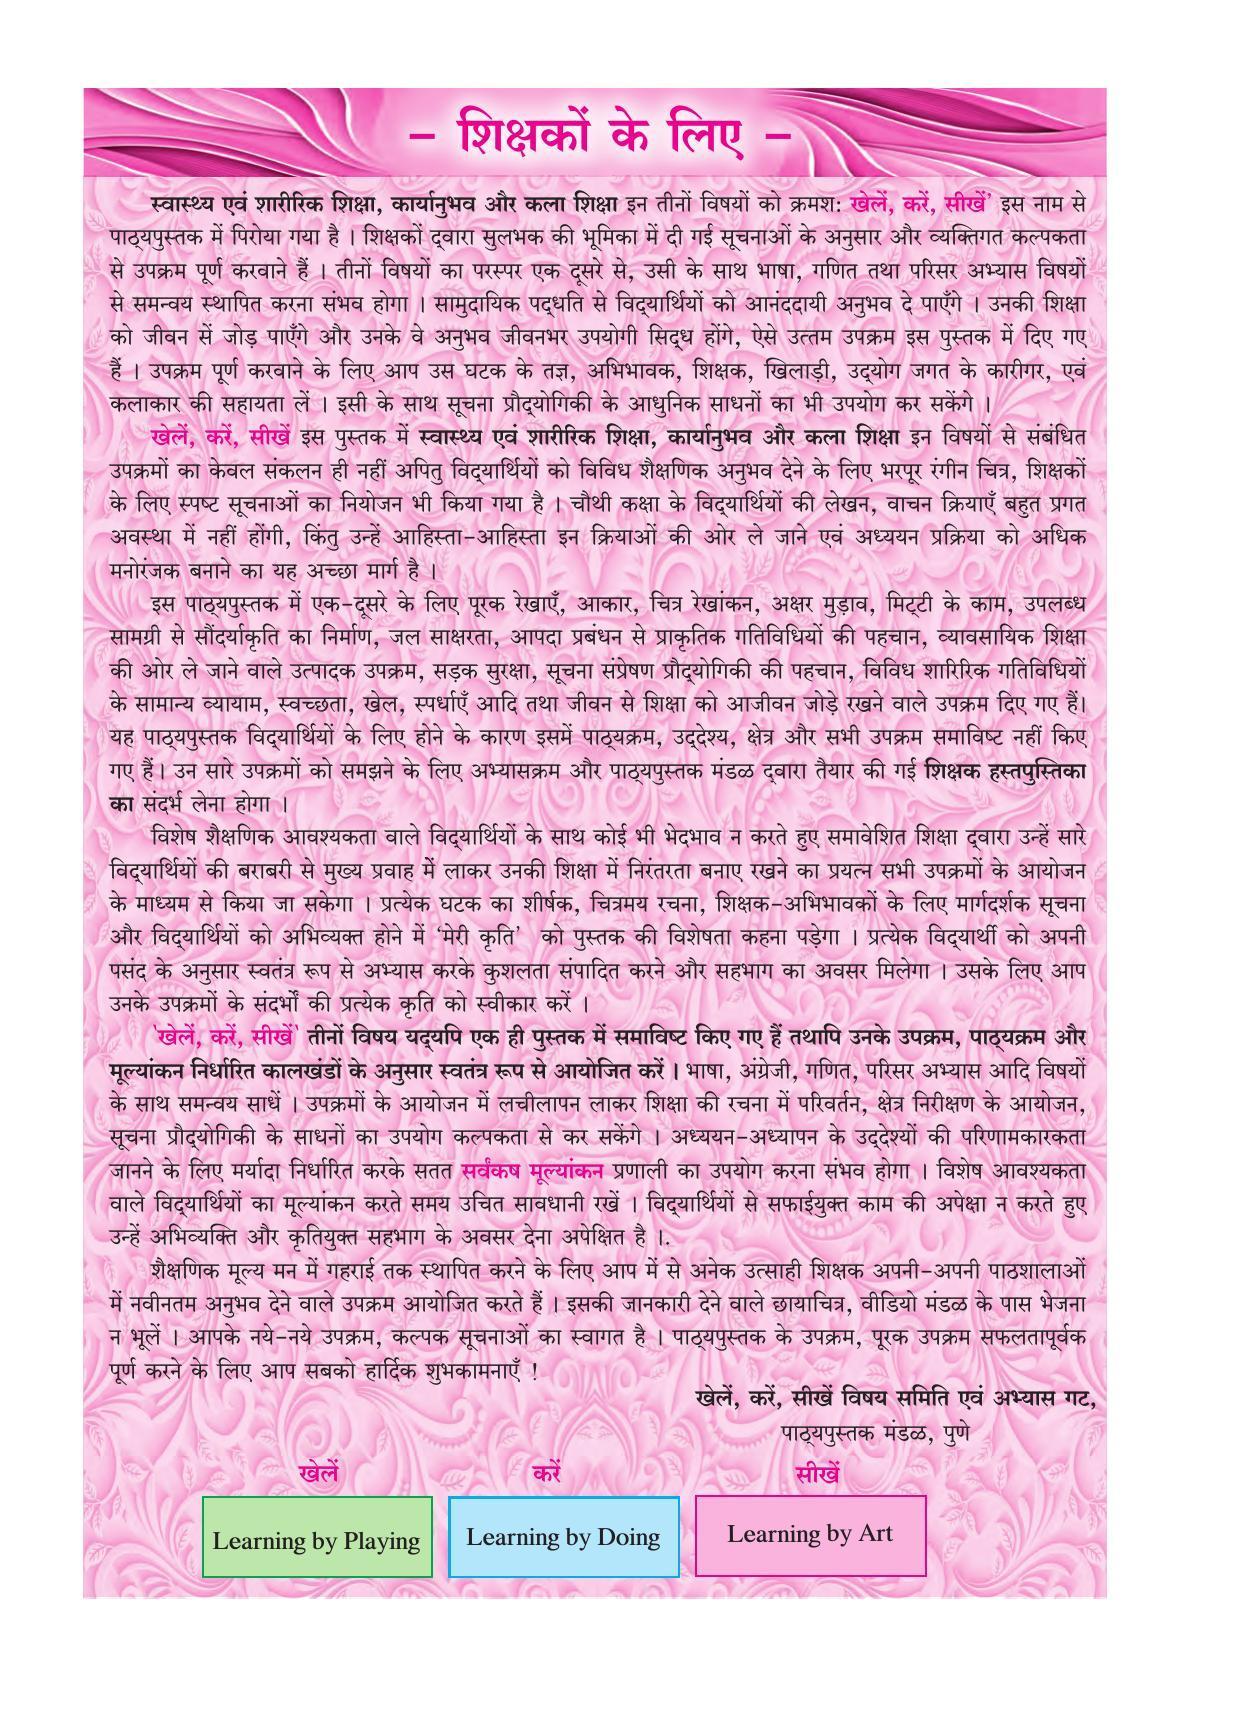 – शिक्षकों के लिए –
स्वास्थ्य एवं शारीरिक शिक्षा, कार्यानुभव और कला शिक्षा इन तीनों विषयों को क्रमश: खेलें, करें, सीखें’ इस नाम से
पाठ्यपुस्तक में पिरोया गया है । शिक्षकों द्‌वारा सुलभक की भूमिका में दी गई सूचनाओं के अनुसार और व्यक्तिगत कल्पकता
से उपक्रम पूर्ण करवाने हैं । तीनों विषयों का परस्पर एक दूसरे से, उसी के साथ भाषा, गणित तथा परिसर अभ्यास विषयों
से समन्वय स्थापित करना संभव होगा । सामुदायिक पद्धति से विद्‌यार्थियों को आनंददायी अनुभव दे पाएँगे । उनकी शिक्षा
को जीवन सें जोड़ पाएँगे और उनके वे अनुभव जीवनभर उपयोगी सिद्ध होंगे, ऐसे उत्तम उपक्रम इस पुस्तक में दिए गए
हैं । उपक्रम पूर्ण करवाने के लिए आप उस घटक के तज्ञ, अभिभावक, शिक्षक, खिलाड़ी, उद्‌योग जगत के कारीगर, एवं
कलाकार की सहायता लें । इसी के साथ सूचना प्रौद्‌योगिकी के आधुनिक साधनों का भी उपयोग कर सकेंगे ।
खेलें, करें, सीखें इस पुस्तक में स्वास्थ्य एवं शारीरिक शिक्षा, कार्यानुभव और कला शिक्षा इन विषयों से संबंधित
उपक्रमों का केवल संकलन ही नहीं अपितु विद्‌यार्थियों को विविध शैक्षणिक अनुभव देने के लिए भरपूर रंगीन चित्र, शिक्षकों
के लिए स्पष्ट सूचनाओं का नियोजन भी किया गया है । चौथी कक्षा के विद्‌यार्थियों की लेखन, वाचन क्रियाएँ बहुत प्रगत
अवस्था में नहीं होंगी, किंतु उन्हें आहिस्ता-आहिस्ता इन क्रियाओं की ओर ले जाने एवं अध्ययन प्रक्रिया को अधिक
मनोरंजक बनाने का यह अच्छा मार्ग है ।
इस पाठ्यपुस्तक में एक-दूसरे के लिए पूरक रेखाएँ, आकार, चित्र रेखांकन, अक्षर मुड़ाव, मिट्‌टी के काम, उपलब्ध
सामग्री से सौंदर्याकृति का निर्माण, जल साक्षरता, आपदा प्रबंधन से प्राकृतिक गतिविधियों की पहचान, व्यावसायिक शिक्षा
की ओर ले जाने वाले उत्पादक उपक्रम, सड़क सुरक्षा, सूचना संप्रेषण प्रौद्‌योगिकी की पहचान, विविध शारिरिक गतिविधियों
के सामान्य व्यायाम, स्वच्छता, खेल, स्पर्धाएँ आदि तथा जीवन से शिक्षा को आजीवन जोड़े रखने वाले उपक्रम दिए गए हैं।
यह पाठ्यपुस्तक विद्‌यार्थियों के लिए होने के कारण इसमें पाठ्यक्रम, उद्‌देश्य, क्षेत्र और सभी उपक्रम समाविष्ट नहीं किए
गए हैं। उन सारे उपक्रमों को समझने के लिए अभ्यासक्रम और पाठ्यपुस्तक मंडळ द्‌वारा तैयार की गई शिक्षक हस्तपुस्तिका
का संदर्भ लेना होगा ।
विशेष शैक्षणिक आवश्यकता वाले विद्‌यार्थियों के साथ कोई भी भेदभाव न करते हुए समावेशित शिक्षा द्‌वारा उन्हें सारे
विद्‌यार्थियों की बराबरी से मुख्य प्रवाह में लाकर उनकी शिक्षा में निरंतरता बनाए रखने का प्रयत्न सभी उपक्रमों के आयोजन
के माध्यम से किया जा सकेगा । प्रत्येक घटक का शीर्षक, चित्रमय रचना, शिक्षक-अभिभावकों के लिए मार्गदर्शक सूचना
और विद्‌यार्थियों को अभिव्यक्त होने में ‘मेरी कृति’ को पुस्तक की विशेषता कहना पड़ेगा । प्रत्येक विद्‌यार्थी को अपनी
पसंद के अनुसार स्वतंत्र रूप से अभ्यास करके कुशलता संपादित करने और सहभाग का अवसर मिलेगा । उसके लिए आप
उनके उपक्रमों के संदर्भों की प्रत्येक कृति को स्वीकार करें ।
‘खेलें, करें, सीखें‘ तीनों विषय यद्‌यपि एक ही पुस्तक में समाविष्ट किए गए हैं तथापि उनके उपक्रम, पाठ्यक्रम और
मूल्यांकन निर्धारित कालखंडों के अनुसार स्वतंत्र रूप से आयोजित करें । भाषा, अंग्रेजी, गणित, परिसर अभ्यास आदि विषयों
के साथ समन्वय साधें । उपक्रमों के आयोजन में लचीलापन लाकर शिक्षा की रचना में परिवर्तन, क्षेत्र निरीक्षण के आयोजन,
सूचना प्रौद्‌योगिकी के साधनों का उपयोग कल्पकता से कर सकेंगे । अध्ययन-अध्यापन के उद्‌देश्यों की परिणामकारकता
जानने के लिए मर्यादा निर्धारित करके सतत सर्वंकष मूल्यांकन प्रणाली का उपयोग करना संभव होगा । विशेष आवश्यकता
वाले विद्‌यार्थियों का मूल्यांकन करते समय उचित सावधानी रखें । विद्‌यार्थियों से सफाईयुक्त काम की अपेक्षा न करते हुए
उन्हें अभिव्यक्ति और कृतियुक्त सहभाग के अवसर देना अपेक्षित है ।.
शैक्षणिक मूल्य मन में गहराई तक स्थापित करने के लिए आप में से अनेक उत्साही शिक्षक अपनी-अपनी पाठशालाओं
में नवीनतम अनुभव देने वाले उपक्रम आयोजित करते हैं । इसकी जानकारी देने वाले छायाचित्र, वीडियो मंडळ के पास भेजना
न भूलें । आपके नये-नये उपक्रम, कल्पक सूचनाओं का स्वागत है । पाठ्यपुस्तक के उपक्रम, पूरक उपक्रम सफलतापूर्वक
पूर्ण करने के लिए आप सबको हार्दिक शुभकामनाएँ !
खेलें, करें, सीखें विषय समिति एवं अभ्यास गट,
पाठ्यपुस्तक मंडळ, पुणे
खेलें करें सीखें
Learning by Playing Learning by Doing Learning by Art